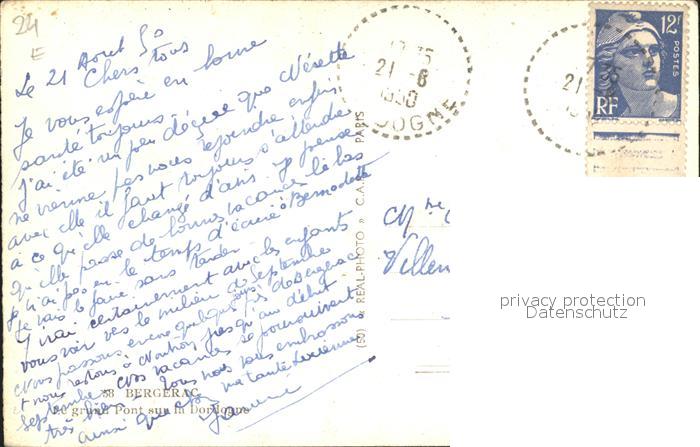 24
E
Le 21 Août 50
Chers tous
Je vous espère en bonne
santé toujours.
J'ai été un peu déçue que Nérette
ne vienne pas vous rejoindre enfin
avec elle il faut toujours s'attendre
à ce qu'elle change d'avis. Je pense
qu'elle passe de bonnes vacances là bas
Je n'ai pas eu le temps d'écrire à Bernadette
Je vais le faire sans tarder.
J'irai certainement avec les enfants
vous voir vers le milieu de septembre
Nous passons encore quelques jours près de Bergerac
et nous restons à jusqu'au début
septembre. Nos vacances se poursuivent
très bien. Tous nous vous embrassons
ainsi que ma tante Lucienne
38 BERGERAC
Le grand Pont sur la Dordogne
(50) & REAL-PHOTO » C.A. PARIS
21-8
1950
DOGNE
21
12F
POSTES
RF
Mme
Villen
privacy protection
Datenschutz